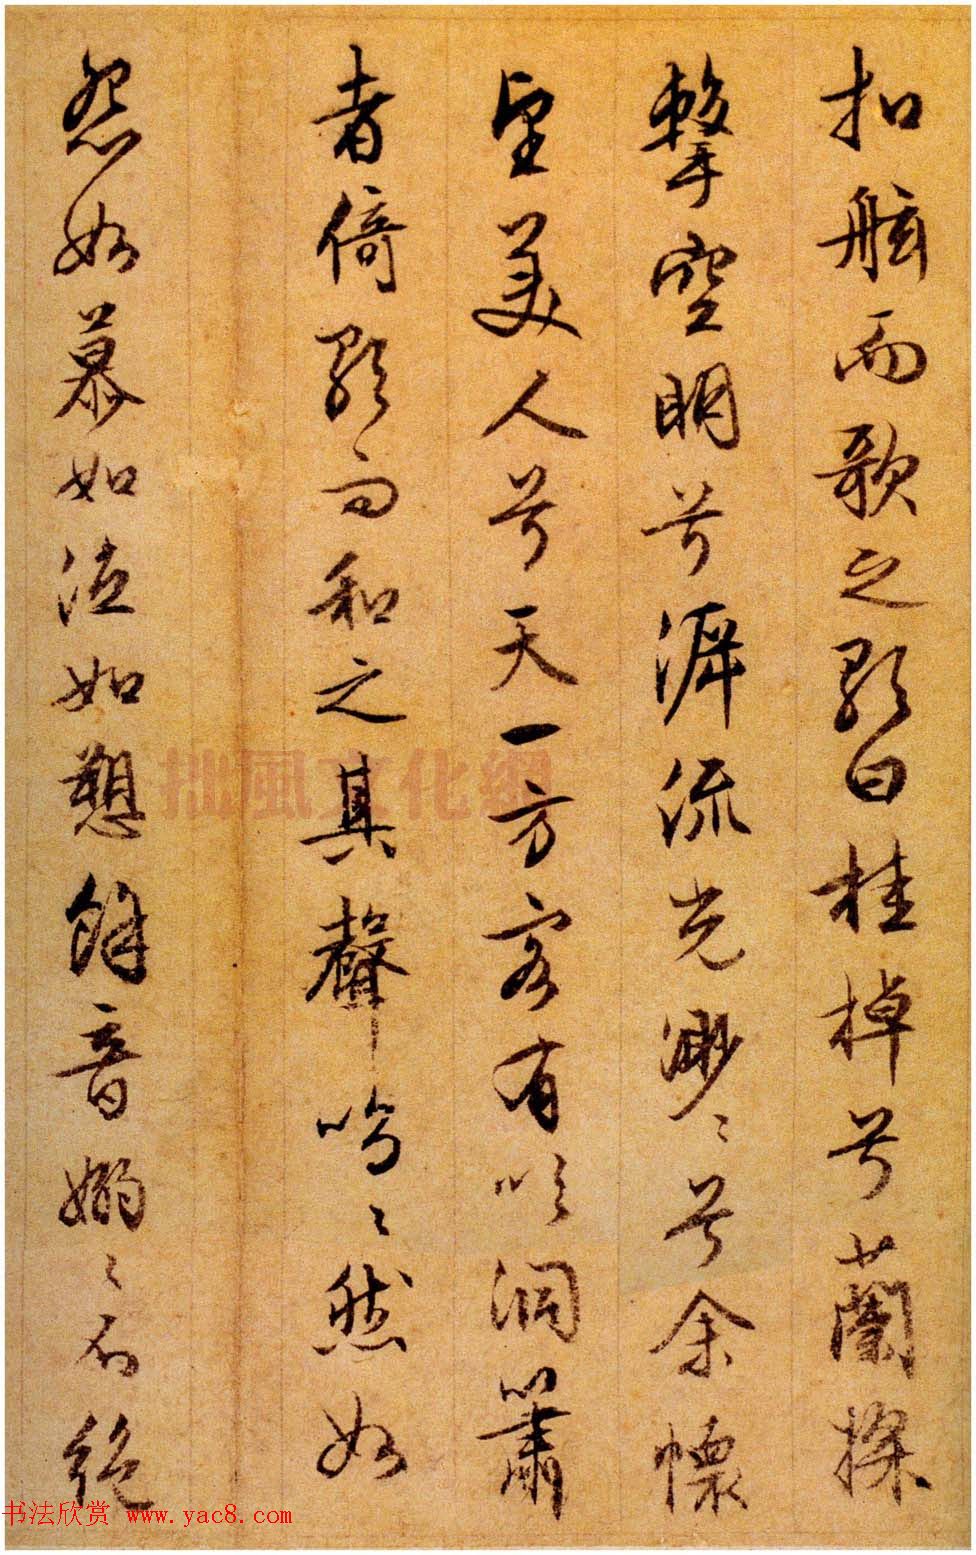 扣舷而歌之歌曰桂棹兮蘭槳
擊空明兮泝流光渺〻兮余懷
望美人兮天一方客有以洞簫
者倚歌而和之其聲嗚〻然如
怨如慕如泣如愬餘音嫋〻不絕
拙風文化網
书法欣赏 www.yac8.com